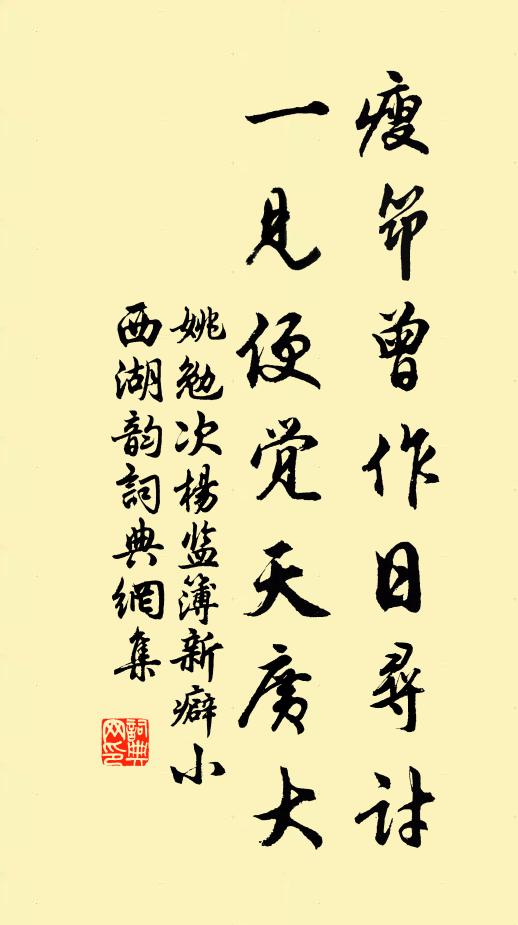 瘦筇曾作日尋討
一見便觉天廣大
姚勉次楊监簿新癖小
西湖韵詞典網集
詞典網印